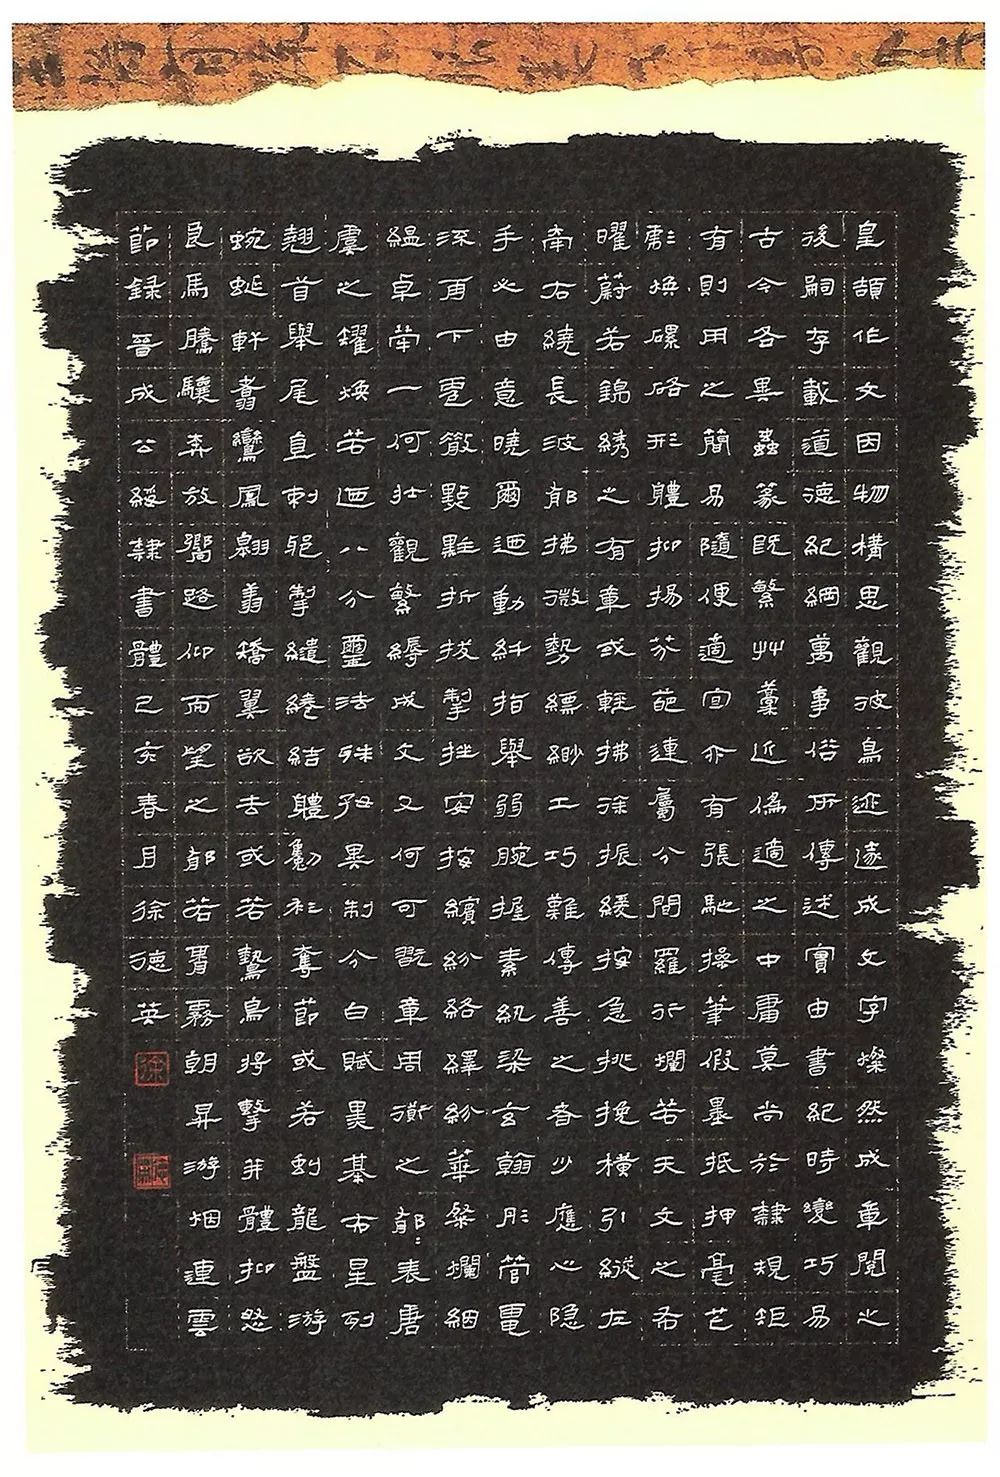 皇頡作文因物構思觀彼鳥迹遂成文字燦然成章閱之
後嗣存載道德紀綱萬事俗所傳述實由書紀時變巧易
古今各異蟲篆既繁艸藁近偽適之中庸莫尚於隸規矩
有則用之簡易隨便適宜亦有張馳操筆假墨抵押毫芒
彪煥磥硌形體抑揚芬葩連屬分間羅行爛若天文之布
曜蔚若錦繡之有章或輕拂徐振緩按急挑挽橫引縱左
牽右繞長波郁拂微勢縹緲工巧難傳善之者少應心隱
手必由意曉爾迺動纤指舉弱腕握素紈染玄翰彤管電
流雨下雹散點黜折拔掣挫安按繽紛絡繹紛華粲爛絪
縕卓犖一何壯觀繁縟成文又何可翫章周衜之郁:表唐
虞之耀煥若迺八分璽法殊好異制分白賦黑棊布星列
翹首舉尾直刺邪掣繾繞結體劋衫奪節或若虯龍盤游
蜿蜒軒翥鸞鳳翱翔矯翼欲去或若鷙鳥將擊并體抑怒
良馬騰驤奔放嚮路仰而望之郁若霄霧朝昇游烟連雲
節錄晉成公綏隸書體己亥春月徐德英
徐